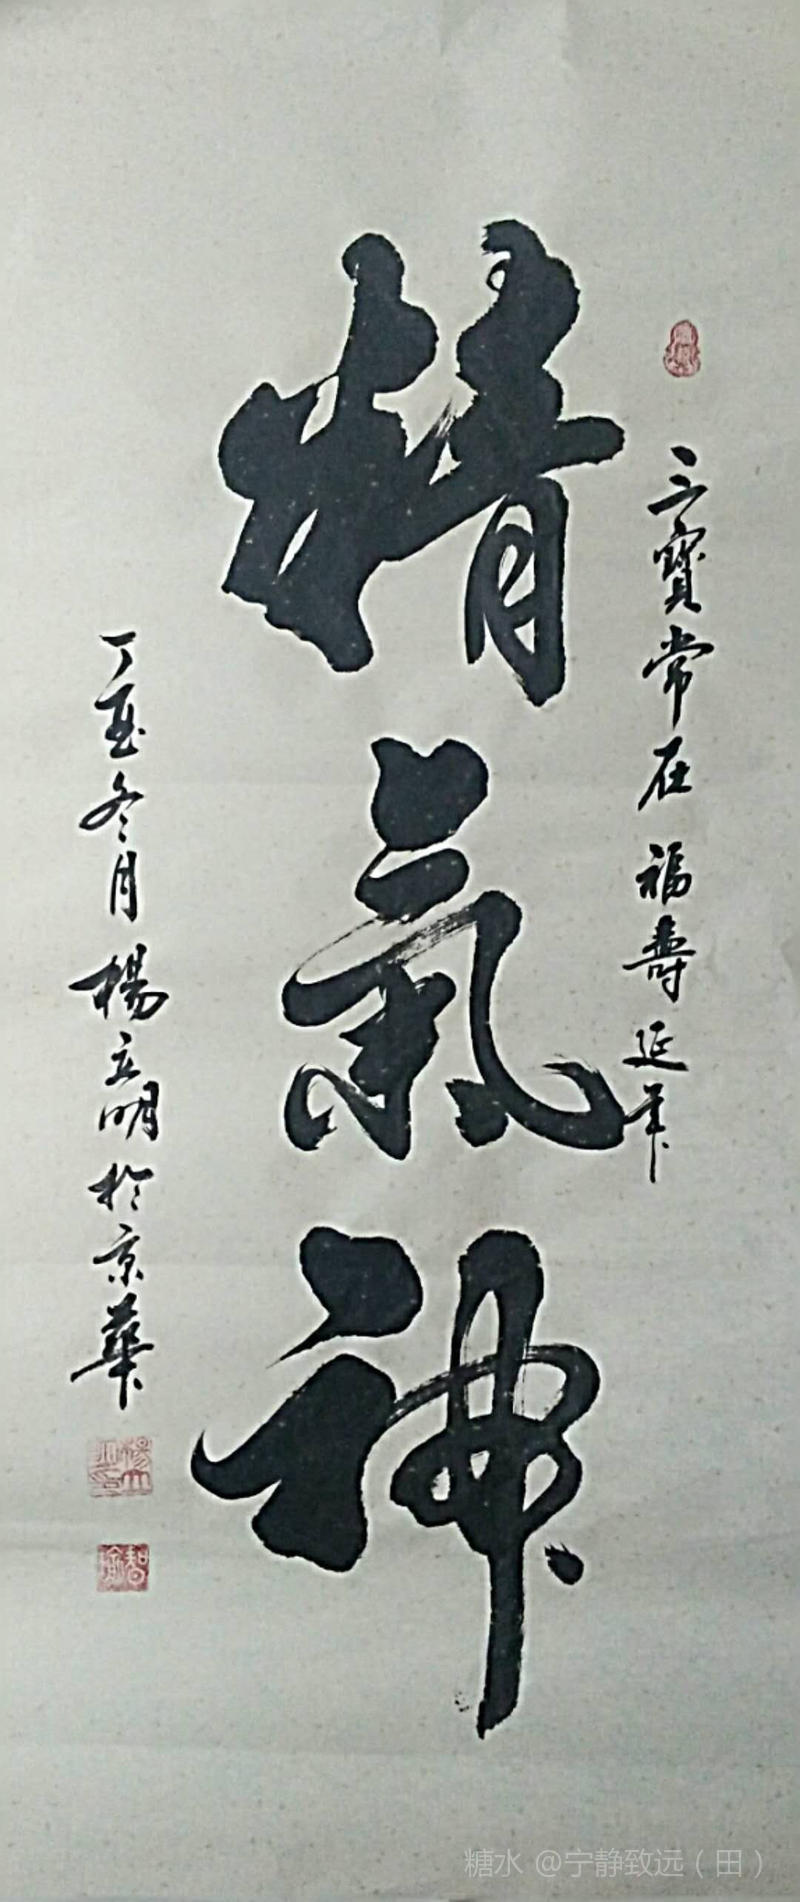 三寶常在福壽延年
精氣神
丁亥冬月楊立明於京華
糖水 @宁静致远（田）